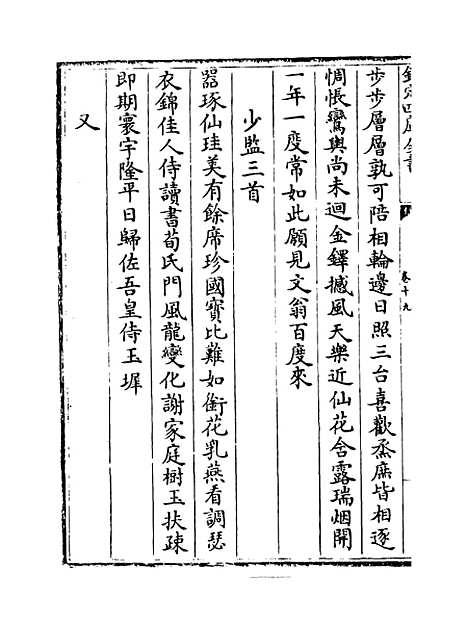 欽定四庫全書
卷十九
步步層層孰可陪相輪邊日照三台喜歡烝庶皆相逐
惆悵鸞輿尚未迴金鐸撼風天樂近仙花含露瑞烟開
一年一度常如此願見文翁百度來
少監三首
器琢仙珪美有餘席珍國寶比難如銜花乳燕看調瑟
衣錦佳人侍讀書荀氏門風龍變化謝家庭樹玉扶疎
即期寰宇隆平日歸佐吾皇侍玉墀
又